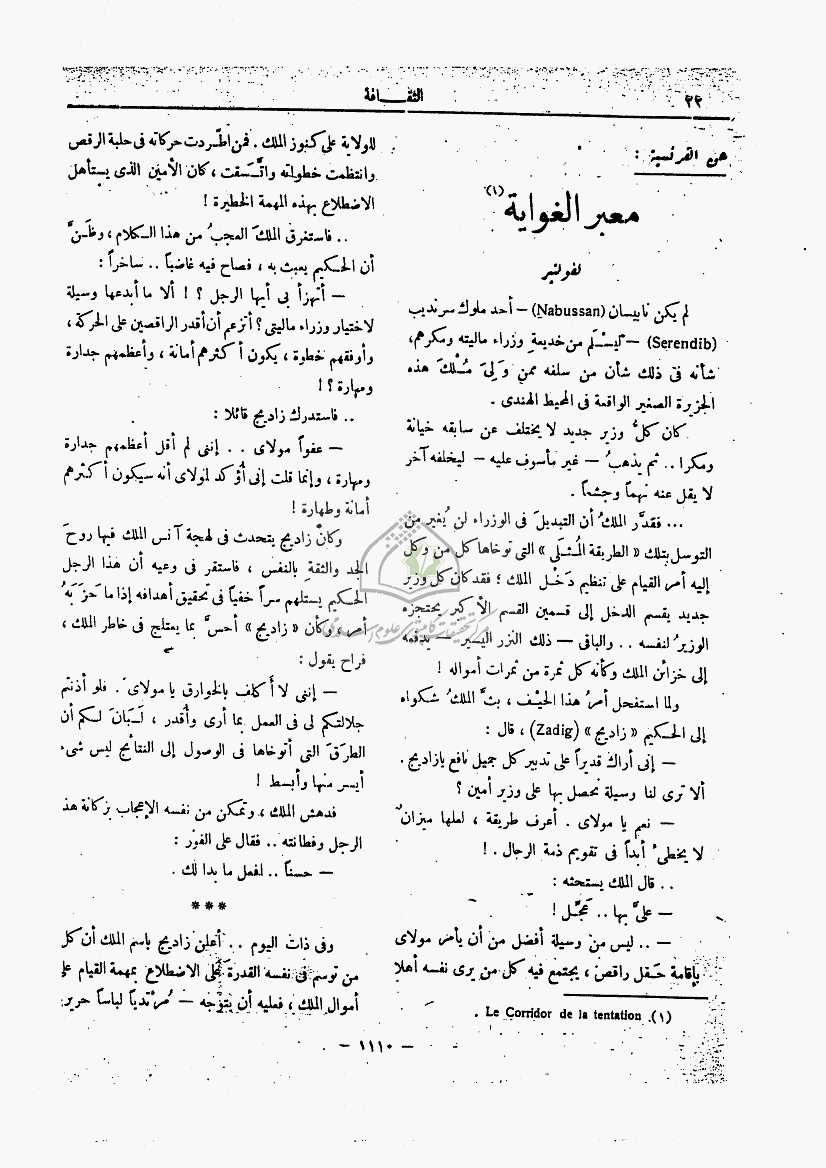 ٢٢
الثقــافة
عن الفرنسية :
معبر الغواية (١)
لفولتير
لم يكن نابيسان (Nabussan) — أحد ملوك سرنديب
(Serendib) — ليسْلَم من خديعة وزراء ماليته ومكرهم،
شأنه فى ذلك شأن من سلفه ممن وَلِىَ مُلْكَ هذه
الجزيرة الصغير الواقعة فى المحيط الهندى .
كان كلُّ وزير جديد لا يختلف عن سابقه خيانة
ومكرا .. ثم يذهبُ — غير مأسوف عليه — ليخلفه آخر
لا يقل عنه نهماً وجشعاً .
... فقدَّر الملكُ أن التبديلَ فى الوزراء لن يُغير من
التوسل بتلك « الطريقة المُثلَى » التى توخاها كل من وكل
إليه أمر القيام على تنظيم دَخْل الملك ؛ فقد كان كل وزير
جديد يقسم الدخل إلى قسمين القسم الأكبر يحتجزه
الوزيرُ لنفسه .. والباقى — ذلك النزر اليسير — يدفعه
إلى خزائن الملك وكأنه كل ثمرة من ثمرات أمواله !
ولما استفحل أمرُ هذا الحيْف ، بثَّ الملكُ شكواه
إلى الحكيم « زاديج » (Zadig) ، قال :
— إنى أراك قديراً على تدبير كل جميل نافع يازاديج .
ألا ترى لنا وسيلة نحصل بها على وزير أمين ؟
— نعم يا مولاى . أعرف طريقة ، لعلها ميزانٌ
لا يخطىء أبداً فى تقويم ذمة الرجال . !
.. قال الملك يستحثه :
— علىَّ بها .. عَجِّل !
— .. ليس من وسيلة أفضل من أن يأمر مولاى
بإقامة حَفل راقص ، يجتمع فيه كل من يرى نفسه أهلا
(١) Le Corridor de la tentation .
للولاية على كنوز الملك . فمن اطّردت حركاته فى حلبة الرقص
وانتظمت خطواته واتَّسَقت ، كان الأمين الذى يستأهل
الاضطلاع بهذه المهمة الخطيرة !
.. فاستغرق الملكَ العجبُ من هذا الكلام ، وظَنَّ
أن الحكيم يعبث به ، فصاح فيه غاضباً .. ساخراً :
— أتهزأ بى أيها الرجل ؟ ! ألا ما أبدعها وسيلة
لاختيار وزراء ماليتى ؟ أتزعم أن أقدر الراقصين على الحركة ،
وأوفقهم خطوة ، يكون أكثرهم أمانة ، وأعظمهم جدارة
ومهارة ؟ !
.. فاستدرك زاديج قائلا :
— عفواً مولاى .. إننى لم أقل أعظمهم جدارة
ومهارة ، وإنما قلت إنى أُؤكد لمولاى أنه سيكون أكثرهم
أمانة وطهارة !
وكان زاديج يتحدث فى لهجة آنس الملك فيها روحَ
الجد والثقةِ بالنفس ، فاستقر فى وعيه أن هذا الرجل
الحكيم يستلهم سراً خفياً فى تحقيق أهدافه إذا ما حَزَبَهُ
أمر ، وكأن « زاديج » أحسَّ بما يعتلج فى خاطر الملك ،
فراح يقول :
— إننى لا أكلف بالخوارق يا مولاى . فلو أذنتم
جلالتكم لى فى العمل بما أرى وأقدر ، لَبَانَ لكم أن
الطرقَ التى أتوخاها فى الوصول إلى النتائج ليس شىء
أيسر منها وأبسط !
فدهش الملك ، وتمكن من نفسه الإعجاب بزكانة هذ
الرجل وفطانته .. فقال على الفَوْر :
— حسناً .. افعل ما بدا لك .
***
وفى ذات اليوم .. أعلن زاديج باسم الملك أن كل
من توسم فى نفسه القدرة على الاضطلاع بمهمة القيام على
أموال الملك ، فعليه أن يتوجه — مُرْتدياً لباساً حرير
— ١١١٠ —